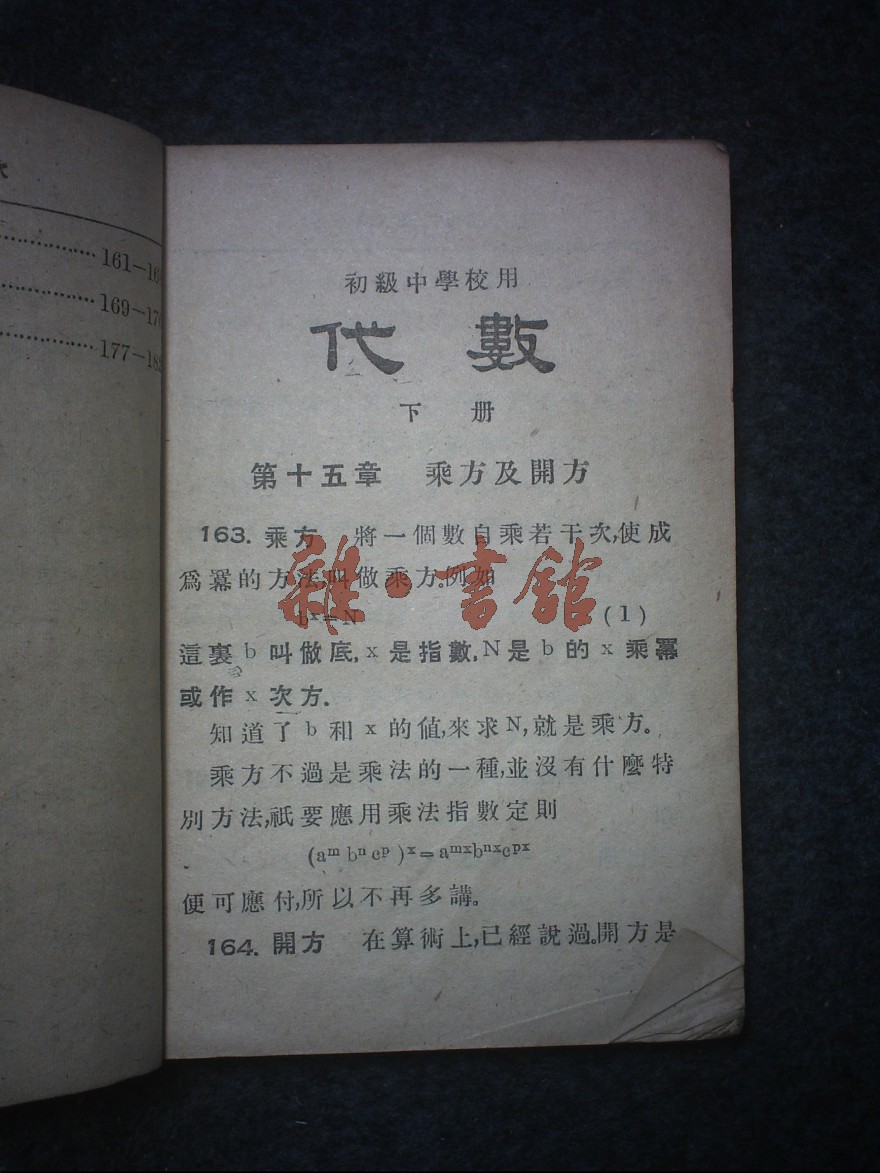 次
161—16
169—176
177—182
初級中學校用
代數
下册
第十五章 乘方及開方
163. 乘方 將一個數自乘若干次,使成
爲冪的方法叫做乘方。例如
bˣ=N (1)
這裏 b 叫做底, x 是指數, N 是 b 的 x 乘冪
或作 x 次方.
知道了 b 和 x 的値,來求 N,就是乘方。
乘方不過是乘法的一種,並沒有什麼特
別方法,祇要應用乘法指數定則
(aᵐ bⁿ cᵖ )ˣ=aᵐˣbⁿˣcᵖˣ
便可應付,所以不再多講。
164. 開方 在算術上,已經說過。開方是
雜·書館